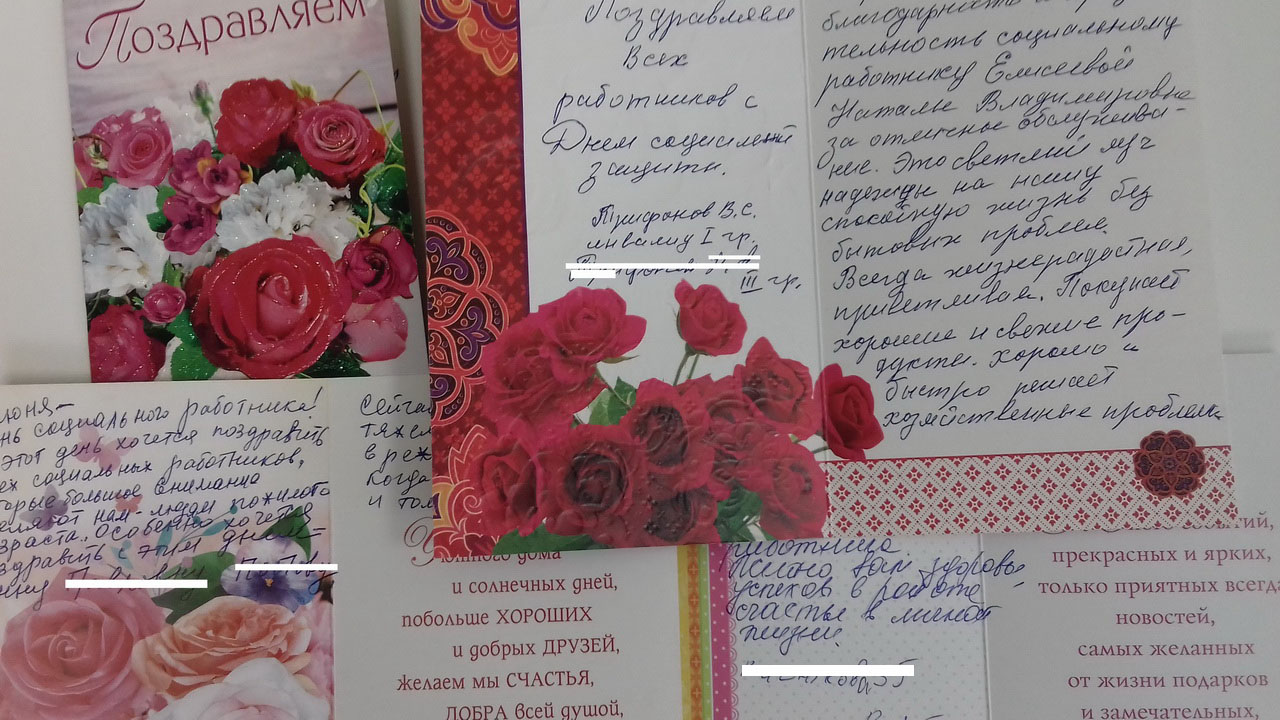 Поздравляем
Поздравляем
Всех
работников с
Днем социальной
защиты.
Трифонов В.С.
инвалид I гр.
III гр.
благодарность
тельность социальному
работнику Елисеевой
Наталье Владимировне
за отличное обслужива-
ние. Это светлый луч
надежды на нашу
спокойную жизнь без
бытовых проблем.
Всегда жизнерадостная,
приветливая. Покупает
хорошие и свежие про-
дукты. хорошо и
быстро решает
хозяйственные проблемы
июня-
нь социального работника!
этот день хочется поздравить
ех социальных работников,
торые большое внимание
еляют нам - людям пожилого
зраста. Особенно хочется
здравить с этим днем
Сейчас
тяжел
в реж
когда
и том
Уютного дома
и солнечных дней,
побольше ХОРОШИХ
и добрых ДРУЗЕЙ,
желаем мы СЧАСТЬЯ,
ДОБРА всей душой,
работница.
Желаю Вам здоровья
успехов в работе
счастья в личной
жизни.
событий,
прекрасных и ярких,
только приятных всегда
новостей,
самых желанных
от жизни подарков
и замечательных,